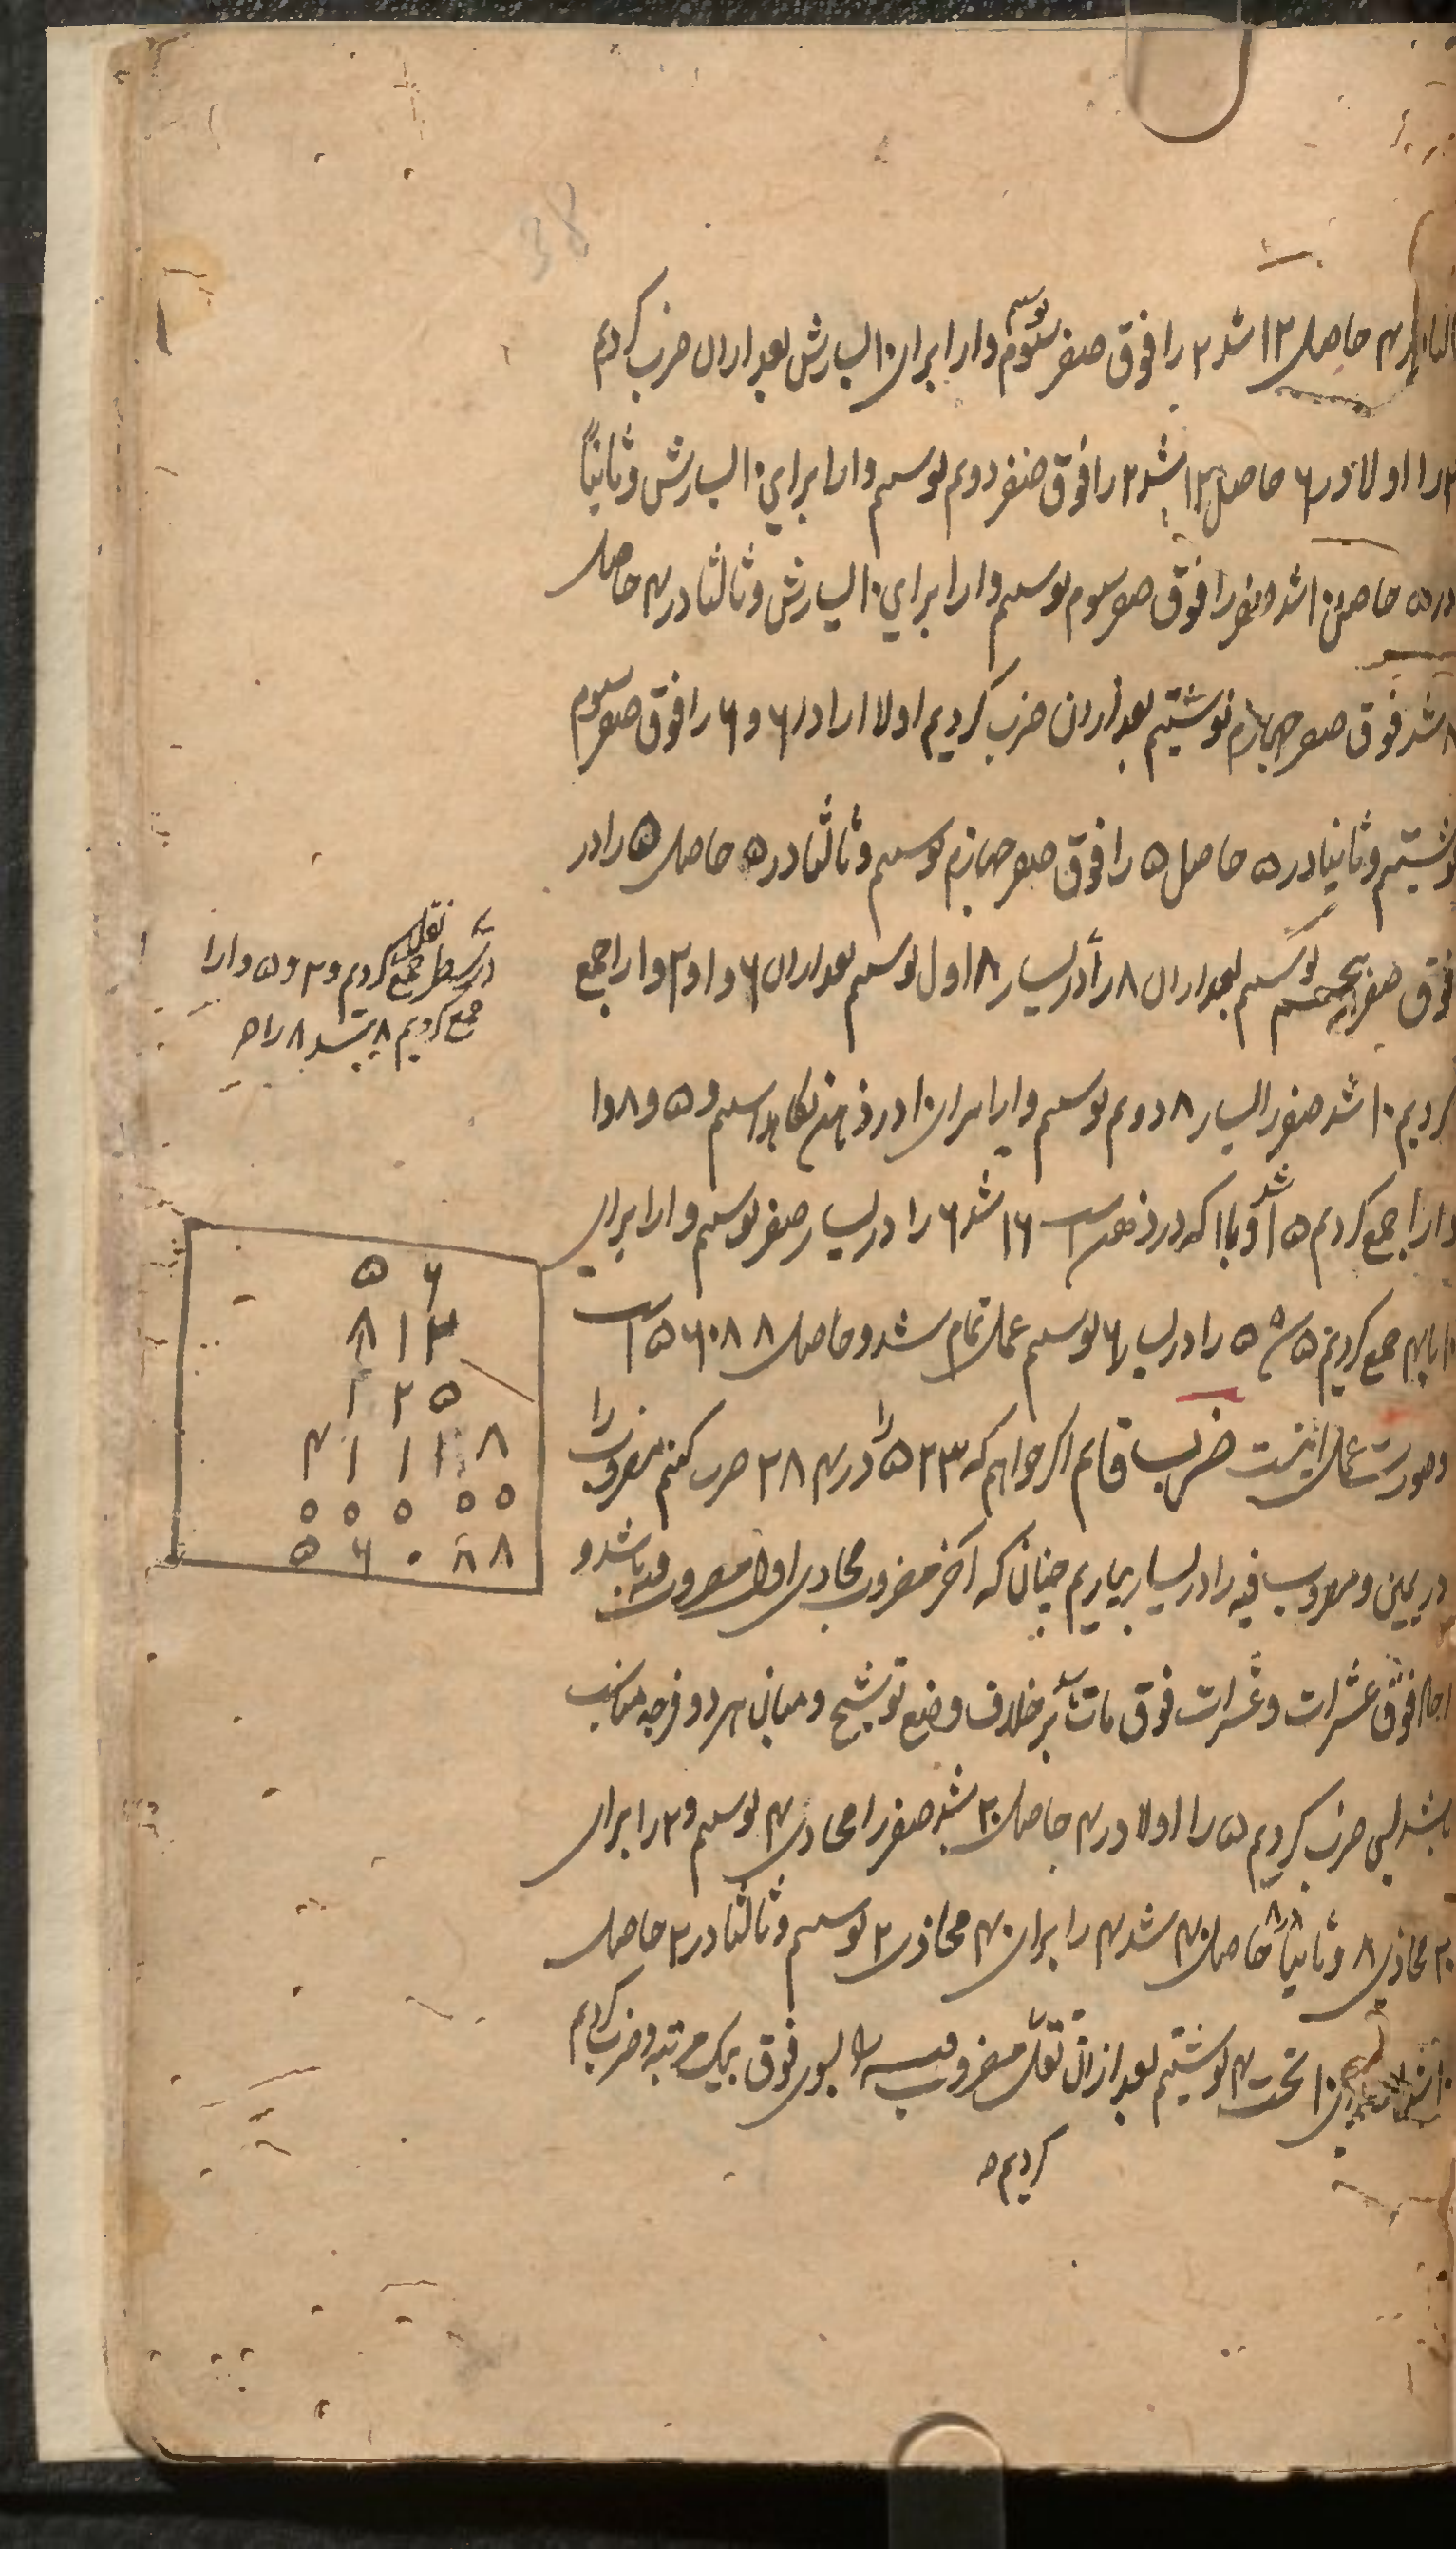 حاصل ۱۲ شد ۲ را فوق صفر سوم نویسیم و ا را برای ۱۰ بیسارش بعد ازان ضرب کردیم
۲ را اولا در ۶ حاصل ۱۲ شد ۲ را فوق صفر دوم نویسیم و ا را برای ۱۰ بیسارش و ثانیاً
در ۵ حاصل ۱۰ شد صفر را فوق صفر سوم نویسیم و ا را برای ۱۰ بیسارش و ثالثا در ۴ حاصل
۸ شد فوق صفر چهارم نوشتیم بعد ازان ضرب کردیم اولا ا را در ۶ و ۶ را فوق صفر سوم
نوشتیم و ثانیا در ۵ حاصل ۵ را فوق صفر چهارم نویسیم و ثالثا در حاصل را در
فوق صفر پنجم نویسیم بعد ازان ۸ را در یسار ۸ اول نویسیم بعد ازان ۶ و ا و ۲ و ا را جمع
کردیم ۱۰ شد صفر را بیسار ۸ دوم نویسیم و ا را برای ۱۰ در ذهن نگاه داشتیم و ۵ و ۸ و ا
و ا را جمع کردیم ۱۵ شد و با ا که در ذهن است ۱۶ شد ۶ را در یسار صفر نویسیم و ا را برای
۱۰ با ۴ جمع کردیم ۵ شد ۵ را در یسار ۶ نویسیم عمل تمام شد و حاصل ۵۶۰۸۸ است
وصورت عمل اینست ضرب قایم اگر خواهیم که ۵۲۳ را در ۲۸۴ ضرب کنیم مضروب را
در یمین و مضروب فیه را در یسار بیاریم چنانکه آخر مضروب محاذی اول مضروب فیه باشد و
احاد فوق عشرات و عشرات فوق مات باشد برخلاف وضع توشیح و میان هر دو فرجه مناسب
باشد پس ضرب کردیم ۵ را اولا در ۴ حاصل ۲۰ شد صفر را محاذی ۴ نویسیم و ۲ را برای
۲۰ محاذی ۸ و ثانیا در ۸ حاصل ۴۰ شد ۴ را برای ۴۰ محاذی ۲ نویسیم و ثالثا در ۲ حاصل
۱۰ شد ۱۰ تحت ۴ نوشتیم بعد ازان نقل مضروب فیه را بسوی فوق بیک مرتبه و ضرب کردیم
کردیم
در سطر نقل کردیم و ۲ و ۵ و ا را
جمع کردیم ۸ شد ۸ را
۵ ۶
۸ ۱ ۲
۱ ۲ ۵
۴ ۱ ۱ ۱ ۸
۰ ۰ ۰ ۰ ۰
۵ ۶ ۰ ۸ ۸
38